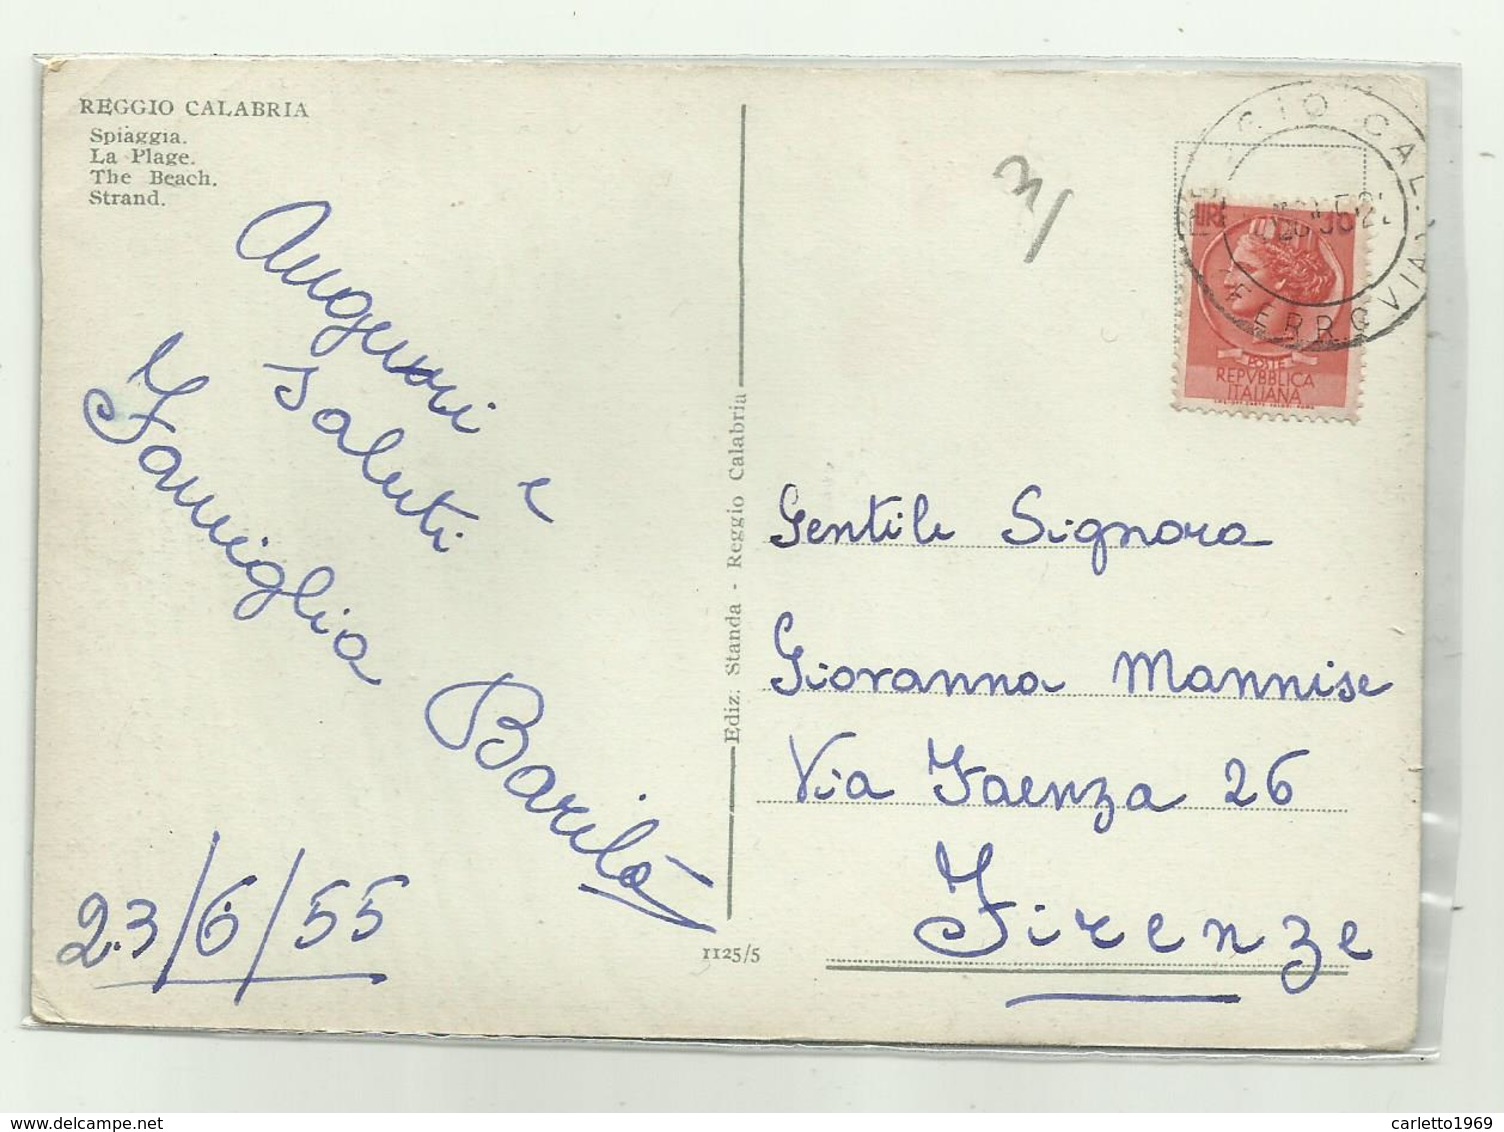 REGGIO CALABRIA
Spiaggia.
La Plage.
The Beach.
Strand.
Auguri e
saluti
Famiglia Barilà
23/6/55
Ediz. Standa - Reggio Calabria
1125/5
GIO CAL.
FERROVIA
LIRE
POSTE
REPVBBLICA
ITALIANA
Gentile Signora
Giovanna Mannise
Via Faenza 26
Firenze
www.delcampe.net
carletto1969